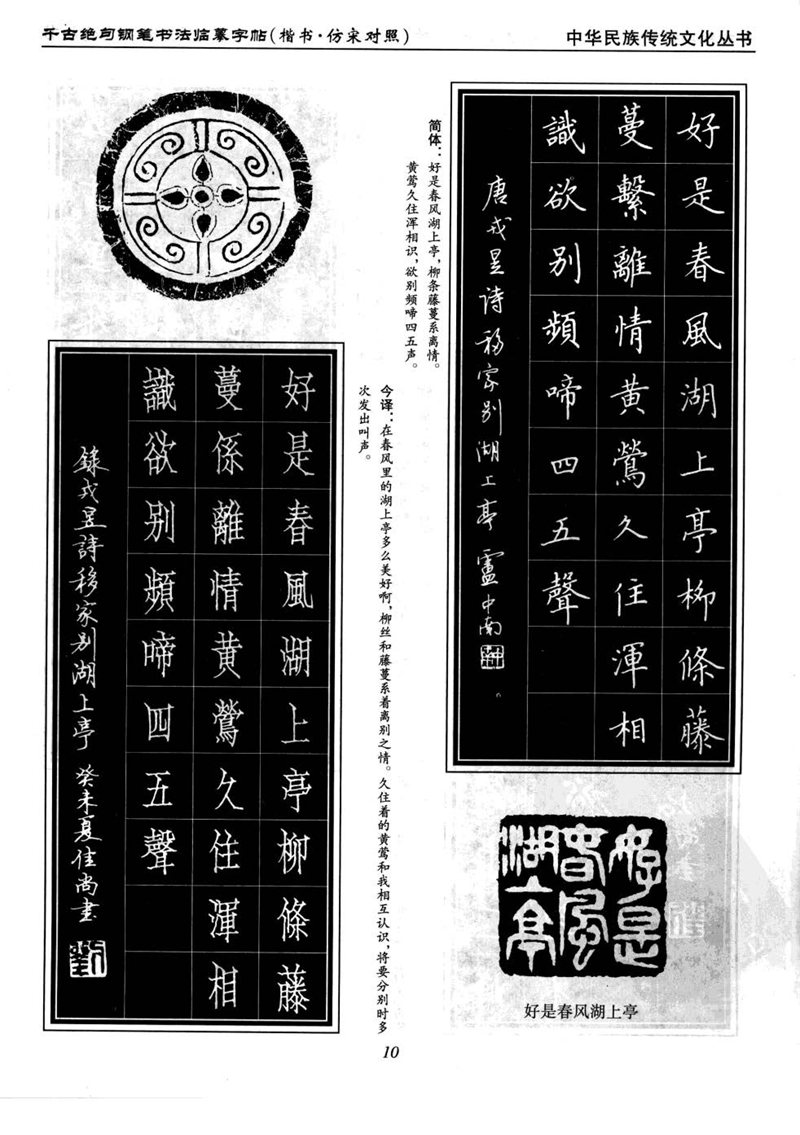 千古绝句钢笔书法临摹字帖(楷书·仿宋对照)
中华民族传统文化丛书
好是春風湖上亭柳條藤
蔓繫離情黄鶯久住渾相
識欲别頻啼四五聲
唐戎昱詩移家别湖上亭 盧中南
简体：好是春风湖上亭，柳条藤蔓系离情。
黄莺久住浑相识，欲别频啼四五声。
今译：在春风里的湖上亭多么美好啊，柳丝和藤蔓系着离别之情。久住着的黄莺和我相互认识，将要分别时多
次发出叫声。
好是春風湖上亭柳條藤
蔓係離情黄鶯久住渾相
識欲别頻啼四五聲
錄戎昱詩移家别湖上亭 癸未夏佳尚書
好是
春風
湖亭
好是春风湖上亭
10